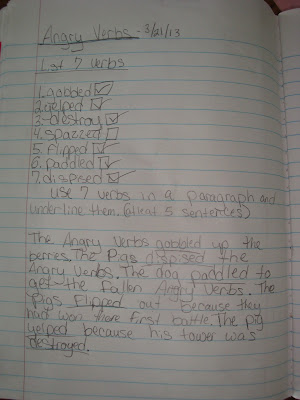 Angry Verbs - 3/21/13
List 7 verbs
1. gobbled ☑
2. yelped ☑
3. destroy ☑
4. spazzed ☐
5. flipped ☑
6. paddled ☑
7. dispised ☑
use 7 verbs in a paragraph and
underline them. (atleat 5 sentences)
The Angry Verbs gobbled up the
berries. The Pigs dispised the
Angry Verbs. The dog paddled to
get the fallen Angry Verbs. The
Pigs flipped out because they
had won there first battle. The pig
yelped because his tower was
destroyed.